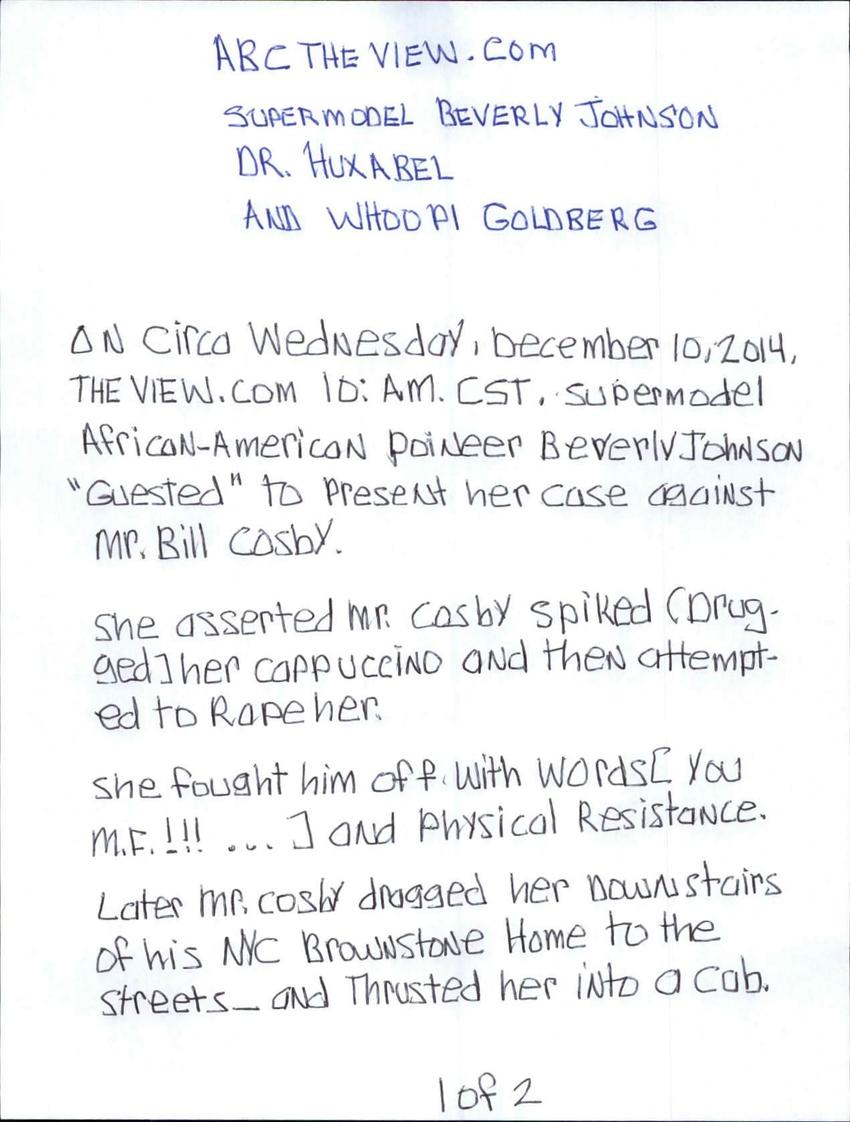 ABC THE VIEW.COM
SUPERMODEL BEVERLY JOHNSON
DR. HUXABEL
AND WHOOPI GOLDBERG
ON Circa Wednesday, December 10, 2014,
THE VIEW.COM 10: AM. CST, supermodel
African-American poineer Beverly Johnson
"Guested" to present her case against
Mr. Bill Cosby.
She asserted Mr. Cosby spiked (Drug-
ged] her cappuccino and then attempt-
ed to Rape her.
She fought him off with words[ You
M.F. !!! ... ] and Physical Resistance.
Later Mr. Cosby dragged her Downstairs
of his NYC Brownstone Home to the
streets_ and Thrusted her into a cab.
1 of 2